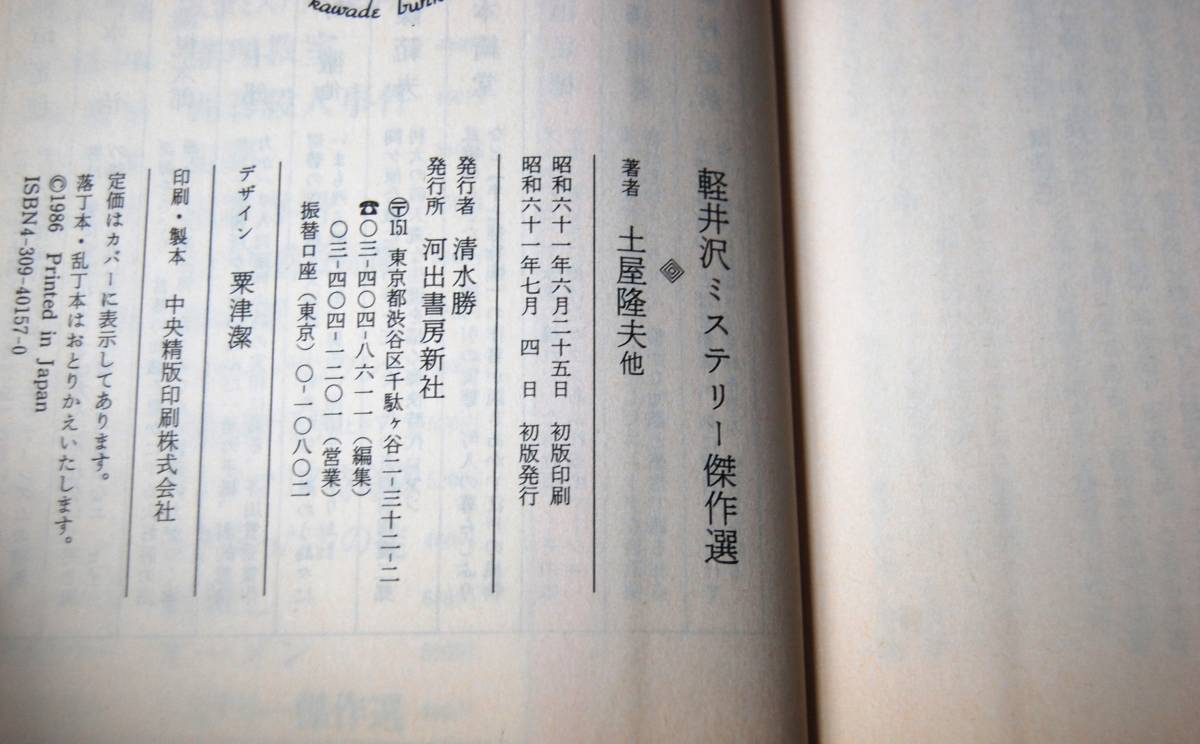 kawade bunko
軽井沢ミステリー傑作選
著者 土屋隆夫他
昭和六十一年六月二十五日 初版印刷
昭和六十一年七月 四 日 初版発行
発行者 清水勝
発行所 河出書房新社
〒151 東京都渋谷区千駄ヶ谷二-三十二-二
☎〇三-四〇四-八六一一(編集)
〇三-四〇四-一二〇一(営業)
振替口座(東京)〇-一〇八〇二
デザイン 粟津潔
印刷・製本 中央精版印刷株式会社
定価はカバーに表示してあります。
落丁本・乱丁本はおとりかえいたします。
©1986 Printed in Japan
ISBN4-309-40157-0